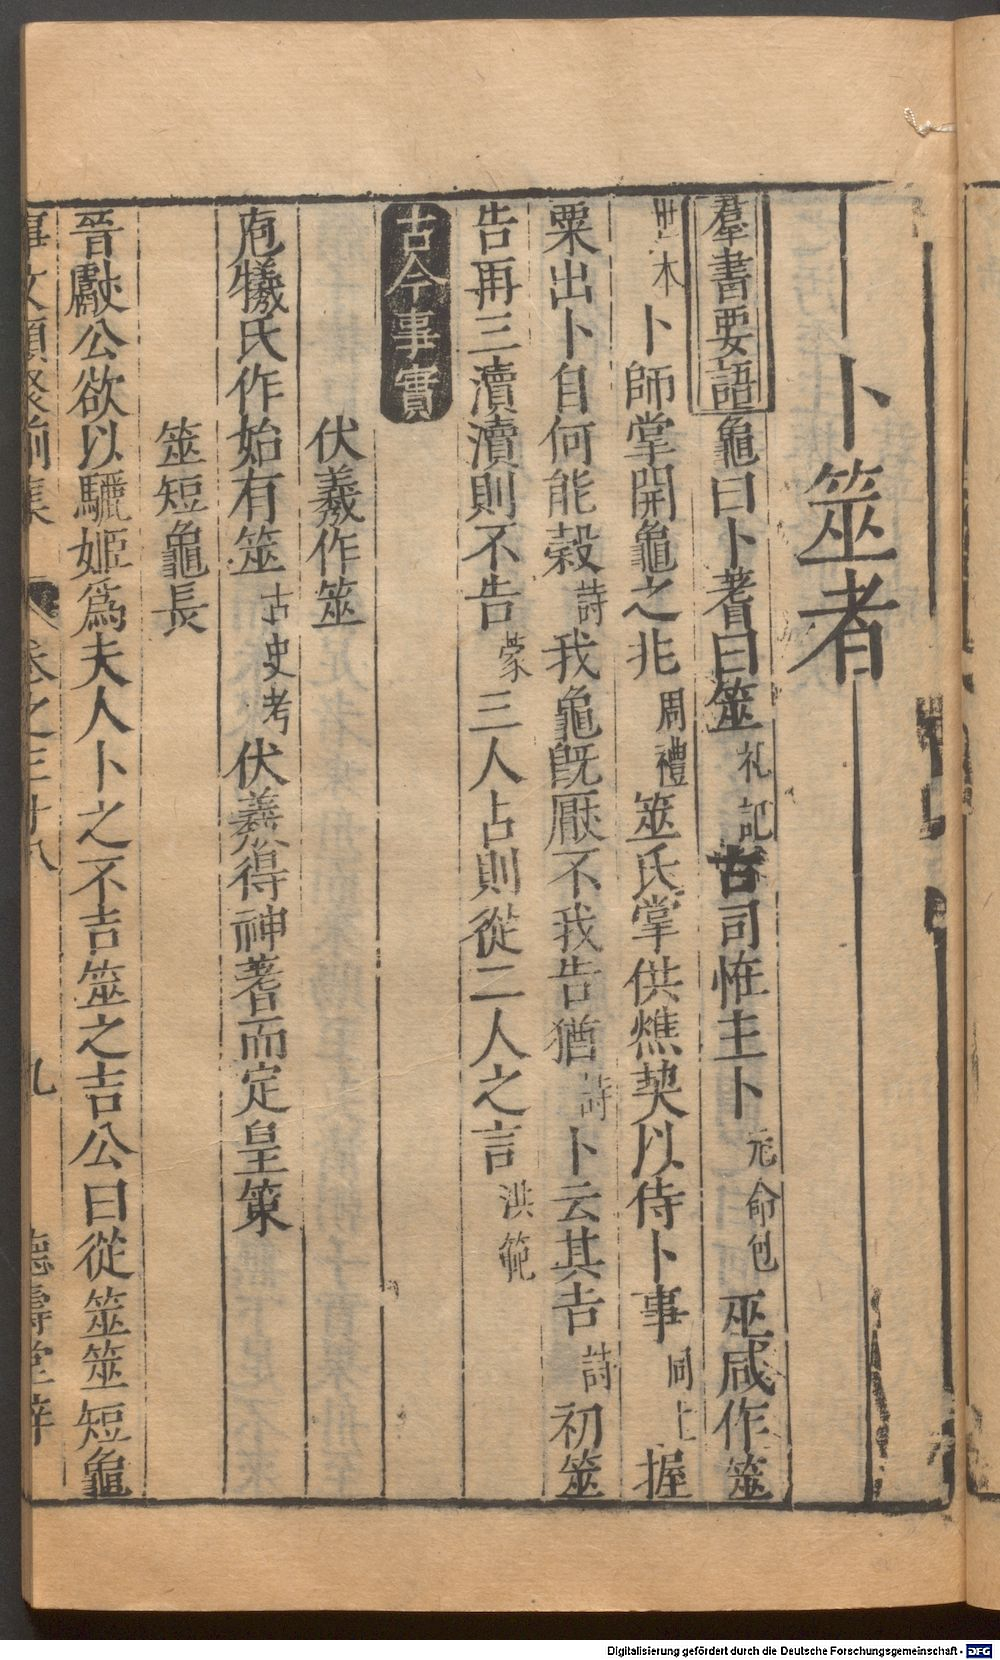 卜筮者
羣書要語龜曰卜蓍曰筮礼記古司惟主卜元命包巫咸作筮
世本卜師掌開龜之兆周禮筮氏掌供燋契以待卜事同上握
粟出卜自何能榖詩我龜旣厭不我告猶詩卜云其吉詩初筮
告再三瀆瀆則不告蒙三人占則從二人之言洪範
古今事實
伏羲作筮
庖犧氏作始有筮古史考伏羲得神蓍而定皇策
筮短龜長
晉獻公欲以驪姬爲夫人卜之不吉筮之吉公曰從筮筮短龜
事文類聚前集 卷之三十八 九 德壽堂梓
Digitalisierung gefördert durch die Deutsche Forschungsgemeinschaft - DFG